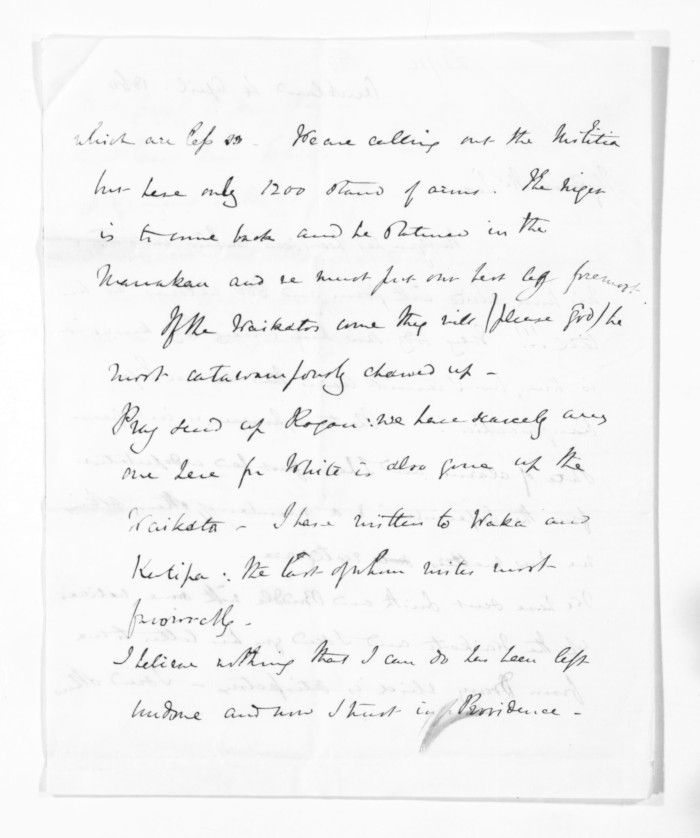 which are less so. We are calling out the Militia
but have only 1200 stand of arms. The Niger
is to come back and be stationed in the
Manukau and we must put our best leg foremost.
If the Waikatos come they will (please God) be
most catawampously chawed up -
Pray send up Rogan: we have scarcely any
one here for White is also gone up the
Waikato - I have written to Waka and
Ketipa: the last of whom writes most
favorably -
I believe nothing that I can do has been left
undone and now I trust in Providence -